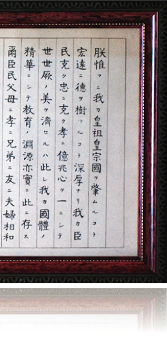 朕惟フニ我カ皇祖皇宗國ヲ肇ムルコト
宏遠ニ德ヲ樹ツルコト深厚ナリ我カ臣
民克ク忠ニ克ク孝ニ億兆心ヲ一ニシテ
世世厥ノ美ヲ濟セルハ此レ我カ國體ノ
精華ニシテ教育ノ淵源亦實ニ此ニ存ス
爾臣民父母ニ孝ニ兄弟ニ友ニ夫婦相和